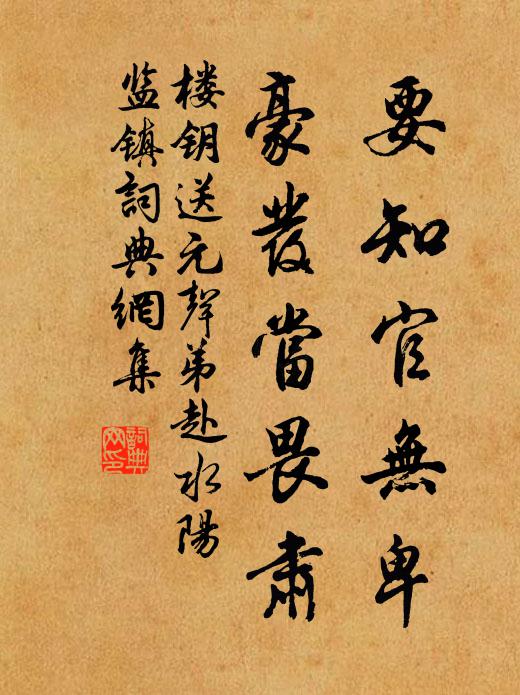 要知官無卑
豪發當畏肅
楼钥送元聲弟赴水陽
监镇詞典網集
詞典
网印